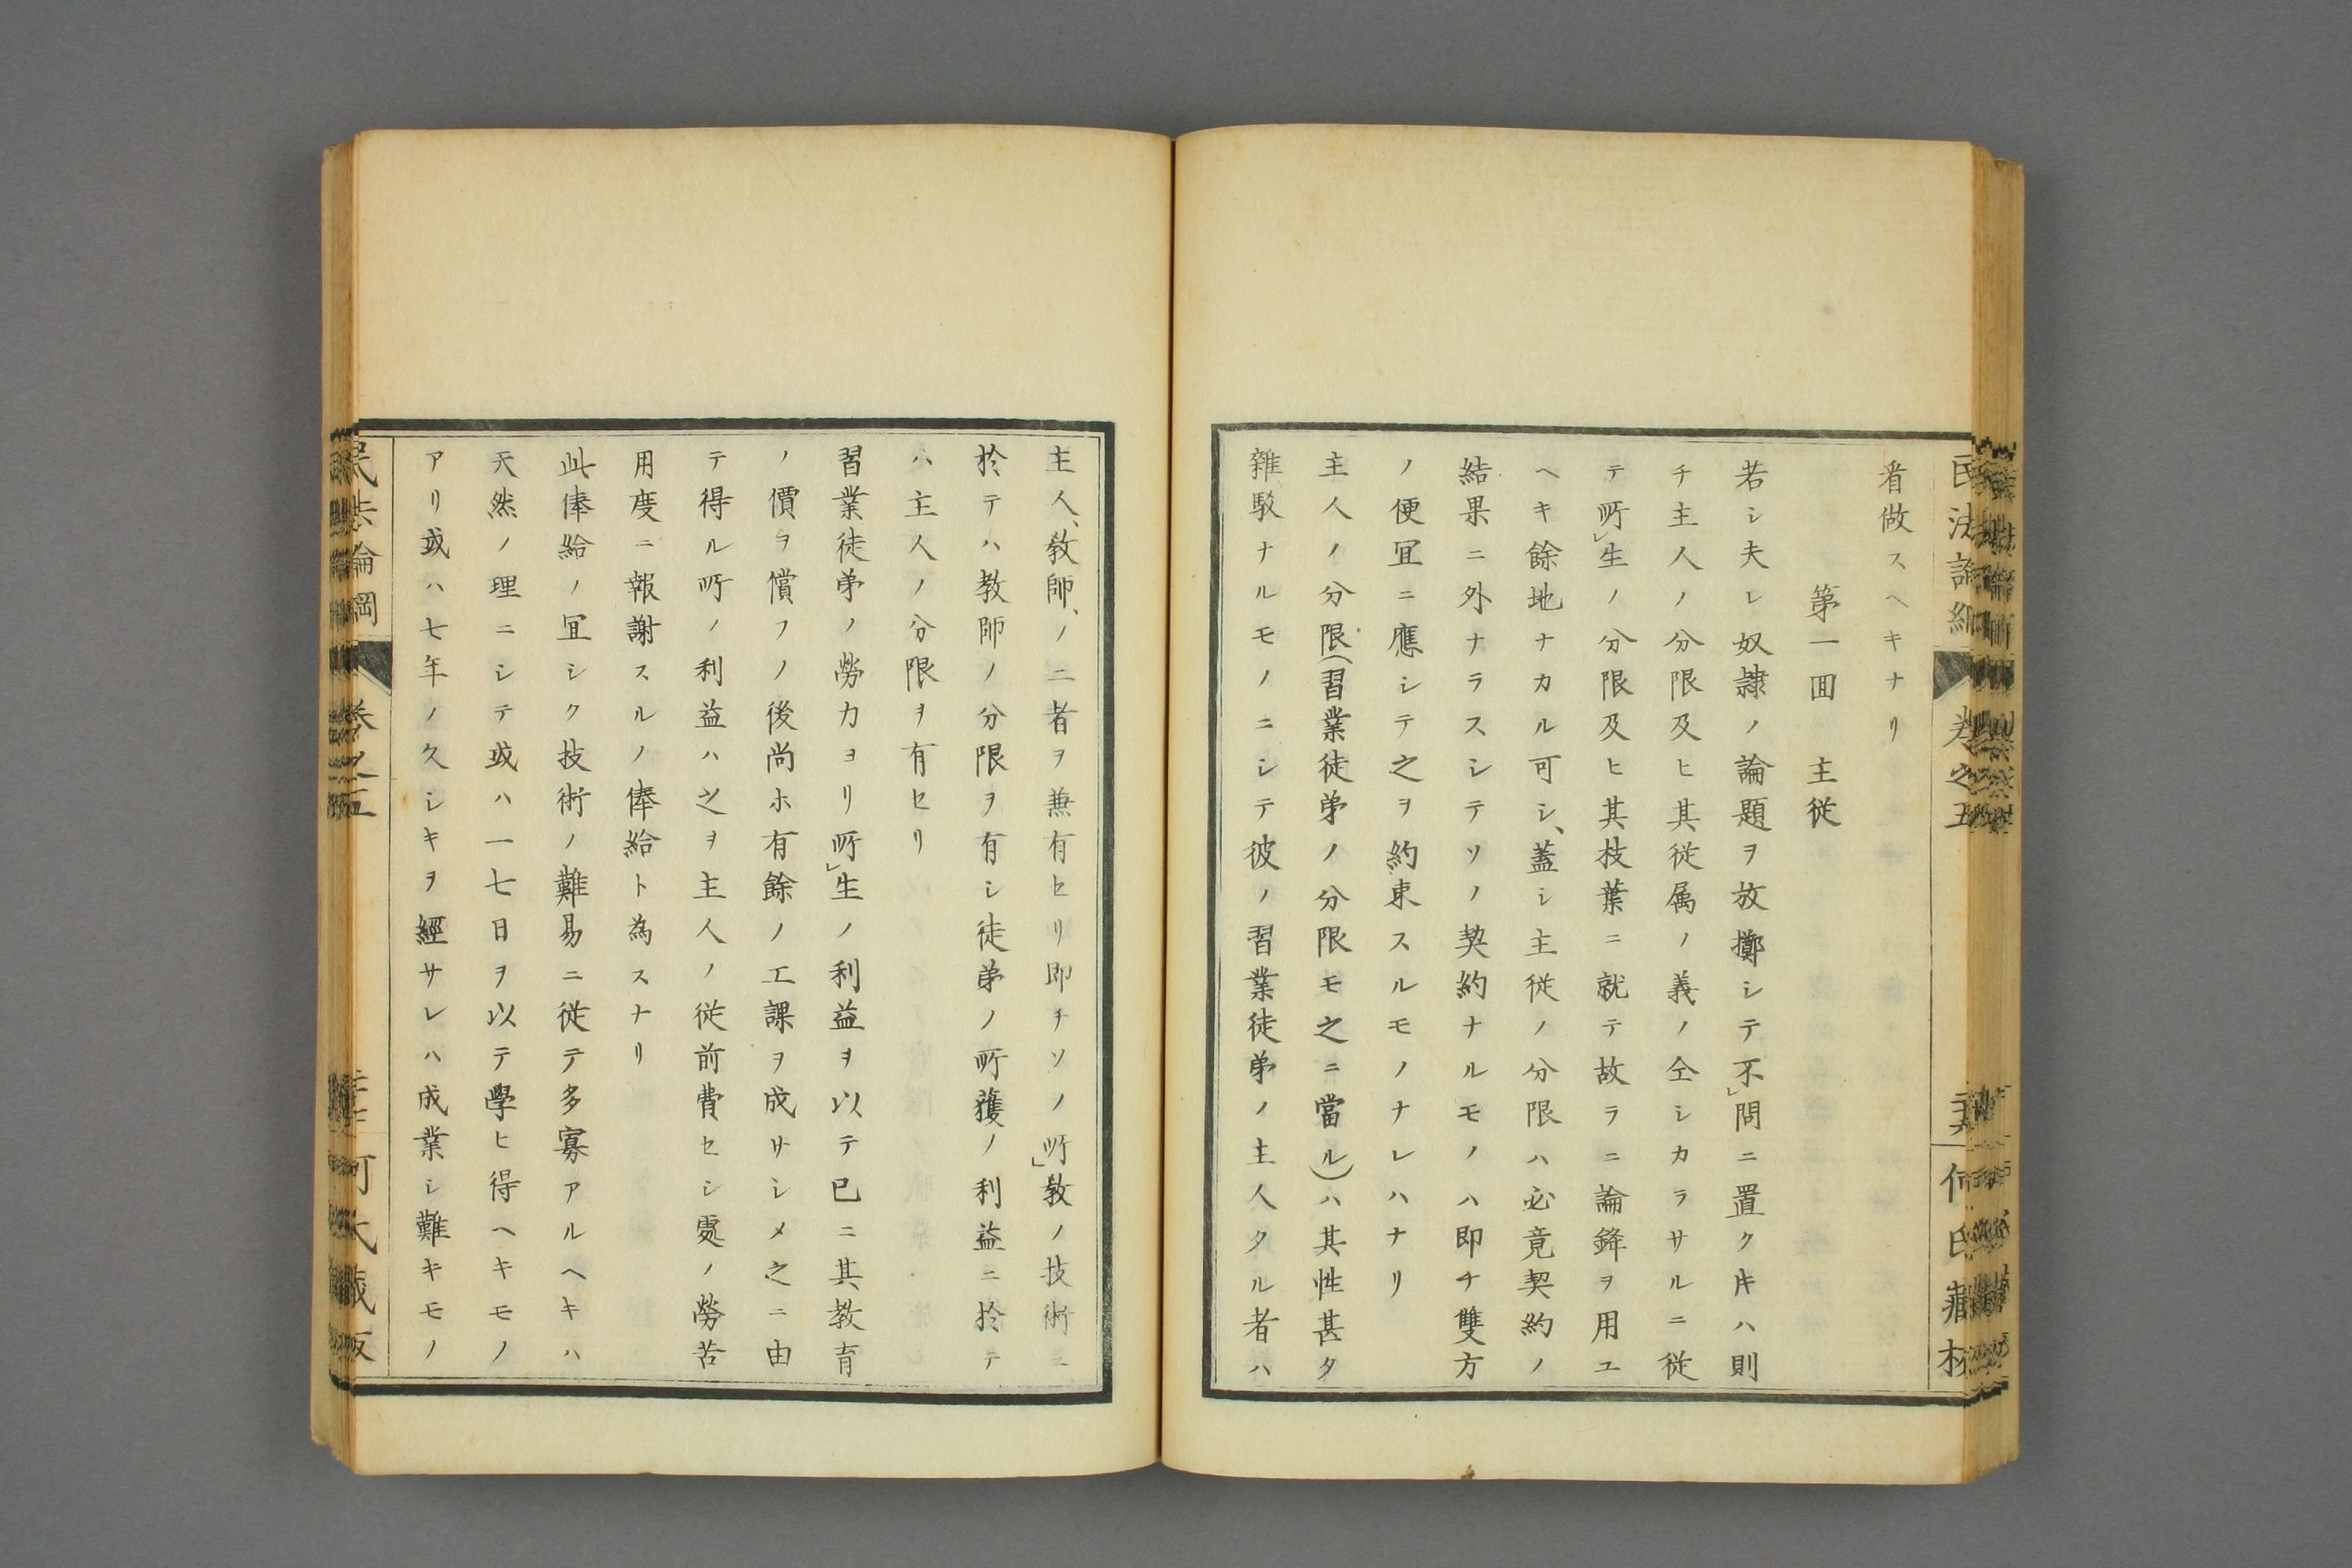 看做スヘキナリ
第一囬　主従
若シ夫レ奴隷ノ論題ヲ放擲シテ不」問ニ置クキハ則
チ主人ノ分限及ヒ其従属ノ義ノ全シカラサルニ従
テ所」生ノ分限及ヒ其枝葉ニ就テ故ラニ論鋒ヲ用ユ
ヘキ餘地ナカル可シ、蓋シ主従ノ分限ハ必竟契約ノ
結果ニ外ナラスシテソノ契約ナルモノハ即チ雙方
ノ便冝ニ應シテ之ヲ約束スルモノナレハナリ
主人ノ分限(習業徒弟ノ分限モ之ニ當ル)ハ其性甚タ
雜駁ナルモノニシテ彼ノ習業徒弟ノ主人タル者ハ
主人、教師、ノ二者ヲ兼有セリ即チソノ所」教ノ技術ニ
於テハ教師ノ分限ヲ有シ徒弟ノ所獲ノ利益ニ於テ
ハ主人ノ分限ヲ有セリ
習業徒弟ノ勞力ヨリ所」生ノ利益ヲ以テ已ニ其教育
ノ價ヲ償フノ後尚ホ有餘ノ工課ヲ成サシメ之ニ由
テ得ル所ノ利益ハ之ヲ主人ノ従前費セシ處ノ勞苦
用度ニ報謝スルノ俸給ト為スナリ
此俸給ノ冝シク技術ノ難易ニ従テ多寡アルヘキハ
天然ノ理ニシテ或ハ一七日ヲ以テ學ヒ得ヘキモノ
アリ或ハ七年ノ久シキヲ經サレハ成業シ難キモノ
民法論綱　卷之五